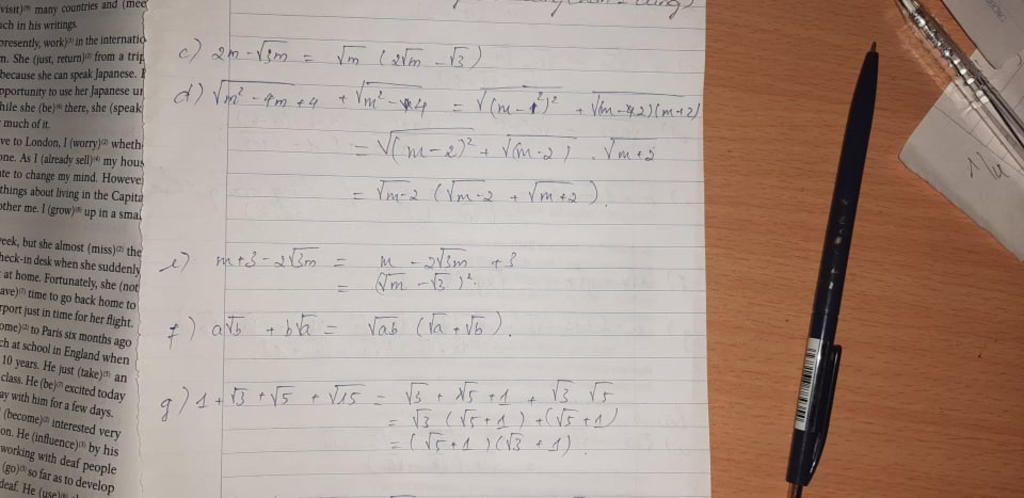 visit)⁽¹⁾ many countries and (mee
ch in his writings.
presently, work)⁽¹⁾ in the internatio
n. She (just, return)⁽²⁾ from a trip
because she can speak Japanese. I
pportunity to use her Japanese
hile she (be)⁽⁴⁾ there, she (speak
much of it.
ve to London, I (worry)⁽²⁾ wheth
one. As I (already sell)⁽⁴⁾ my hous
te to change my mind. Howeve
things about living in the Capita
other me. I (grow)⁽⁸⁾ up in a smal
eek, but she almost (miss)⁽²⁾ the
heck-in desk when she suddenly
at home. Fortunately, she (not
ave)⁽⁷⁾ time to go back home to
port just in time for her flight.
ome)⁽²⁾ to Paris six months ago
ch at school in England when
10 years. He just (take)⁽⁵⁾ an
class. He (be)⁽⁷⁾ excited today
ay with him for a few days.
(become)⁽²⁾ interested very
on. He (influence)⁽³⁾ by his
working with deaf people
(go)⁽⁵⁾ so far as to develop
deaf. He (use)
c) 2m - √3m = √m (2√m - √3)
d) √m² - 4m + 4 + √m² - 4 = √(m - 2)² + √(m - 2)(m+2)
= √(m - 2)² + √(m - 2) . √m+2
= √m-2 (√m-2 + √m+2).
e) m+3 - 2√3m = m - 2√3m + 3
= (√m - √3)².
f) a√b + b√a = √ab (√a + √b).
g) 1 + √3 + √5 + √15 = √3 + √5 + 1 + √3 . √5
= √3 (√5 + 1) + (√5 + 1)
= (√5 + 1)(√3 + 1).